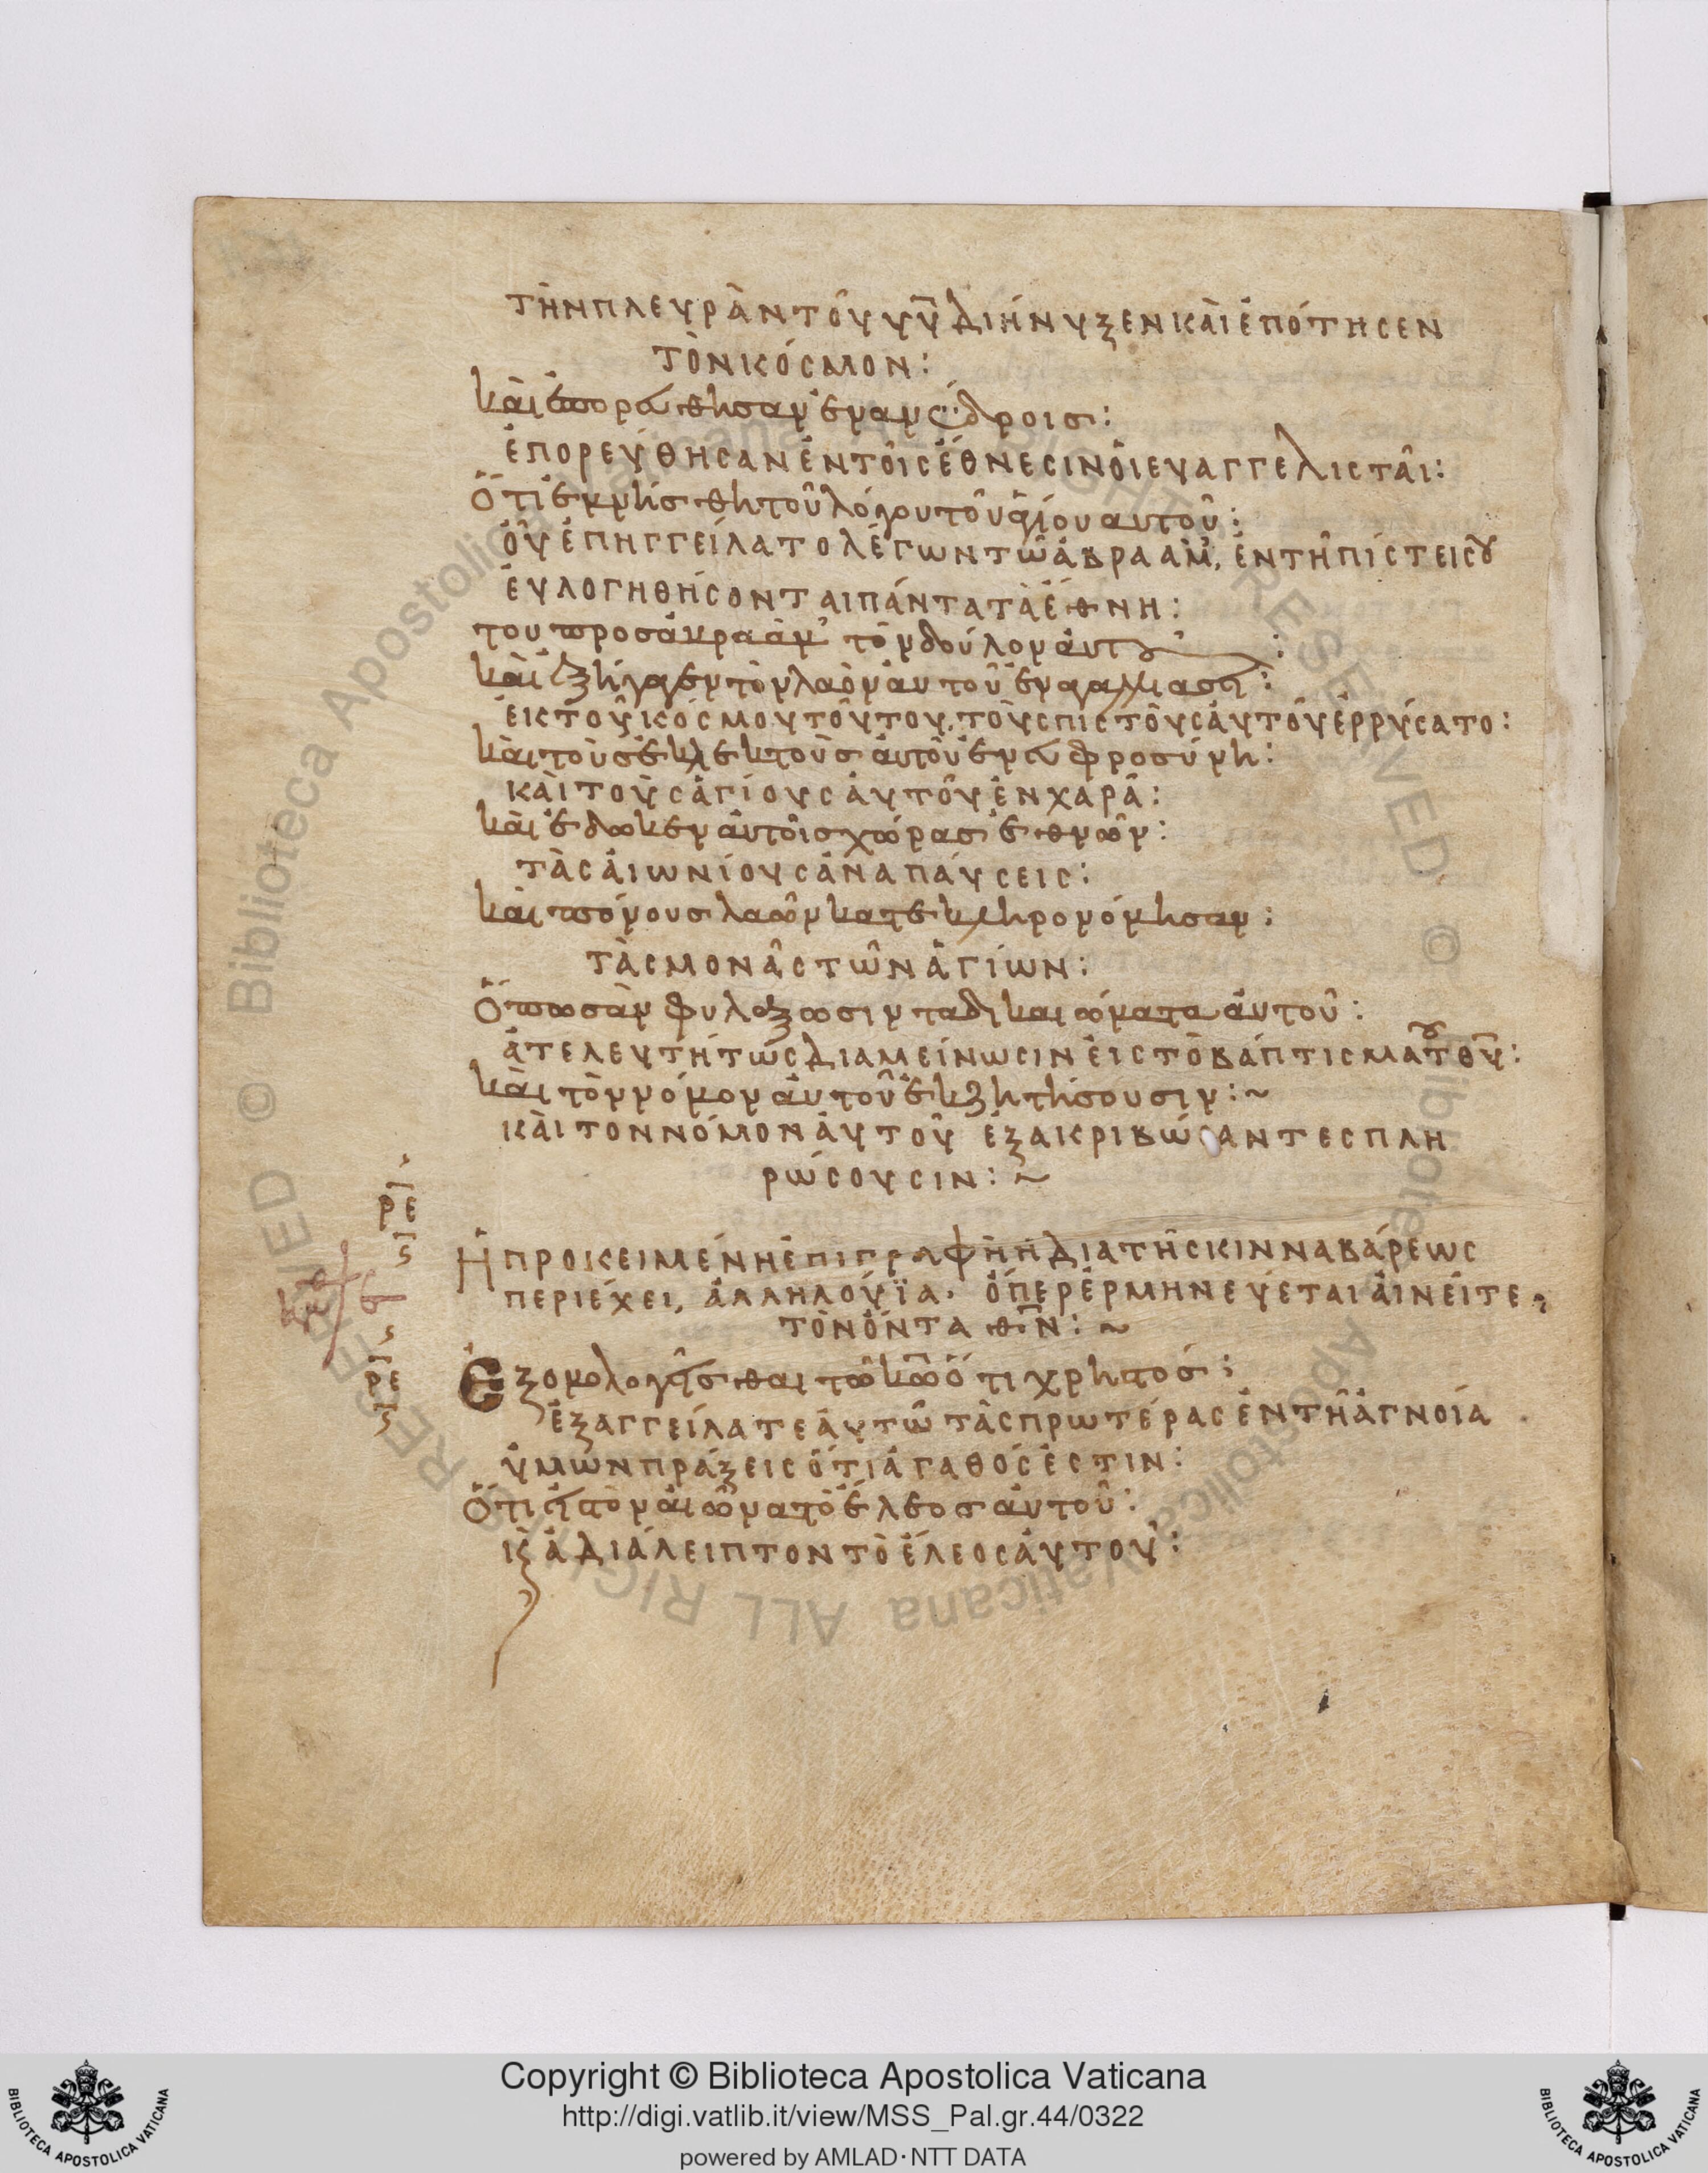 τὴν πλευρὰν τοῦ υυ διήνυξεν καὶ ἐπότησεν
τὸν κόσμον:
καὶ ἐπορεύθησαν ἐν ἀνύδροις:
ἐπορεύθησαν ἐν τοῖς ἔθνεσιν ὁι ευαγγελισταῖ:
Ὅτι ἐμνήσθη τοῦ λόγου τοῦ ἁγίου αυτοῦ:
οὗ ἐπηγγείλατο λέγων τῶ ἁβραὰμ, ἐν τῆ πίστει σου
ἐυλογηθήσονται πάντα τὰ ἔθνη:
του προς ἁβραὰμ τὸν δούλον ἁυτου:
καὶ ἐξήγαγεν τὸν λαὸν ἁυτοῦ ἐν αγαλλιασει:
ἐκ τοῦ κόσμου τοῦτου, τοὺς πιστοῦς ἁυτοῦ ἐρρύσατο:
καὶ τοὺς ἐκλεκτοὺς ἁυτοῦ ἐν ευφροσύνη:
καὶ τοὺς ἁγίους ἁυτοῦ ἐν χαρᾶ:
καὶ ἐδωκεν ἁυτοῖς χώρας ἐθνῶν:
τὰς ἀιωνίους ἀναπάυσεις:
καὶ πόνους λαῶν κατεκληρονόμησαν:
τὰς μονᾶς τῶν ἁγίων:
Ὅπως ὰν φυλαξωσιν τα δικαιώματα ἁυτοῦ:
ἀτελευτήτως διαμείνωσιν ἐις τὸ βάπτισμα του θυ:
καὶ τὸν νόμον ἁυτοῦ ἐκζητήσουσιν:~
καὶ τον νόμον ἁυτοῦ ἐξακριβώσαντες πλη
ρώσουσιν:~
ρε
ς
Ἡ προικειμένη ἐπιγραφὴ ἡ διὰ τῆς κινναβάρεως
περιέχει, ἀλληλούϊα· ὅπερ ἑρμηνεύεται ἀινεῖτε
τὸν ὄντα θν:~
ρε
ς
Εξομολογεῖσθαι τῶ κῶ ὅτι χρητος:
ἐξαγγείλατε ἁυτῶ τὰς πρωτέρας ἐν τῆ ἀγνοία
ὑμῶν πράξεις ὅτι ἀγαθός ἐστιν:
Ὅτι εις τὸν αἰῶνα τὸ ἔλεος ἁυτοῦ:
κ ἀδιάλειπτον τὸ ἔλεος ἁυτοῦ:
Copyright © Biblioteca Apostolica Vaticana
http://digi.vatlib.it/view/MSS_Pal.gr.44/0322
powered by AMLAD·NTT DATA
BIBLIOTECA APOSTOLICA VATICANA
BIBLIOTECA APOSTOLICA VATICANA